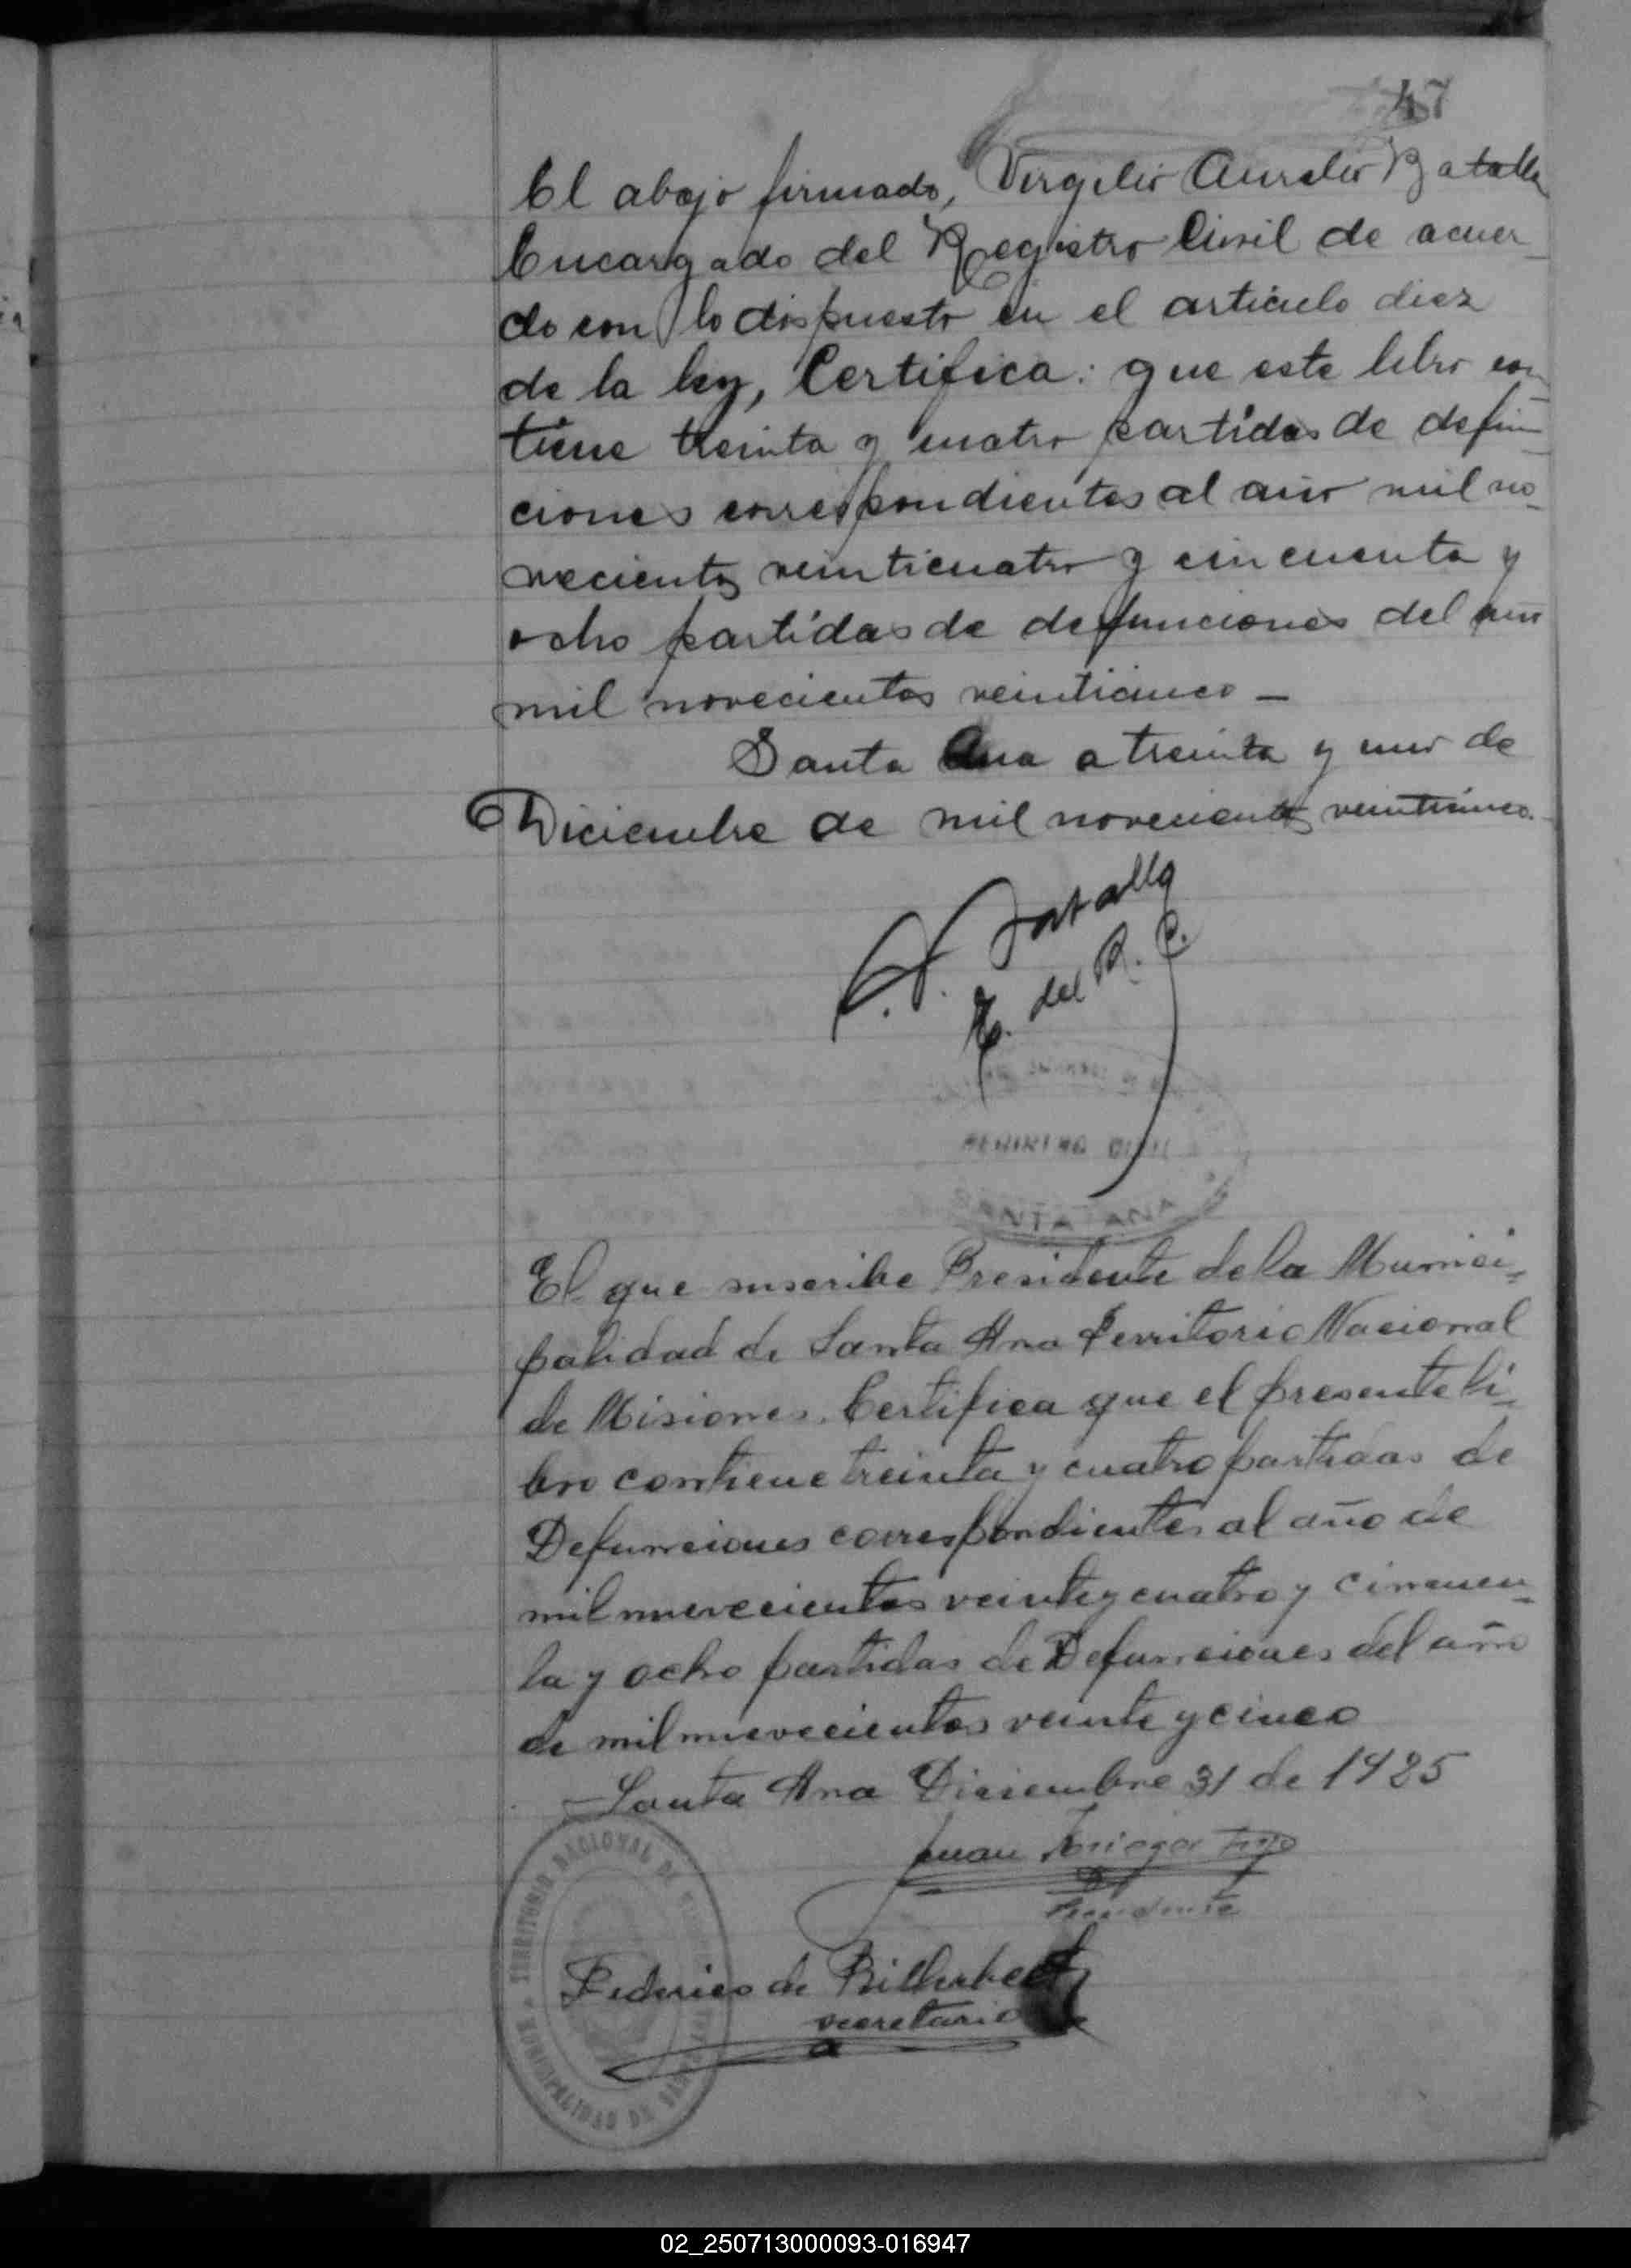 47
El abajo firmado, Virgilio Aurelio Batalla
Encargado del Registro Civil de acuer_
do con lo dispuesto en el artículo diez
de la ley, Certifica: que este libro con_
tiene treinta y cuatro partidas de defun_
ciones correspondientes al año mil no_
vecientos veinticuatro y cincuenta y
ocho partidas de defunciones del año
mil novecientos veinticinco —
Santa Ana a treinta y uno de
Diciembre de mil novecientos veinticinco.
V. A. Batalla
E. del R. C.
REGISTRO CIVIL
SANTA ANA
El que suscribe Presidente de la Munici_
palidad de Santa Ana Territorio Nacional
de Misiones. Certifica que el presente li_
bro contiene treinta y cuatro partidas de
Defunciones correspondientes al año de
mil nuevecientos veinte y cuatro y cincuen_
ta y ocho partidas de Defunciones del año
de mil nuevecientos veinte y cinco
Santa Ana Diciembre 31 de 1925
Juan
Presidente
Federico de
secretario
TERRITORIO NACIONAL DE MISIONES
MUNICIPALIDAD DE SANTA ANA
02_250713000093-016947